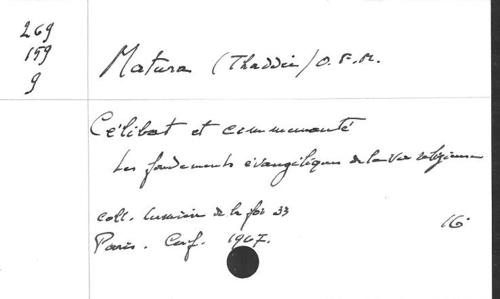 269
159
9
Matura (Thaddée) O.F.M.
Célibat et communauté
Les fondements évangéliques de la vie religieuse
coll. Lumière de la foi 33
16°
Paris. Cerf. 1967.